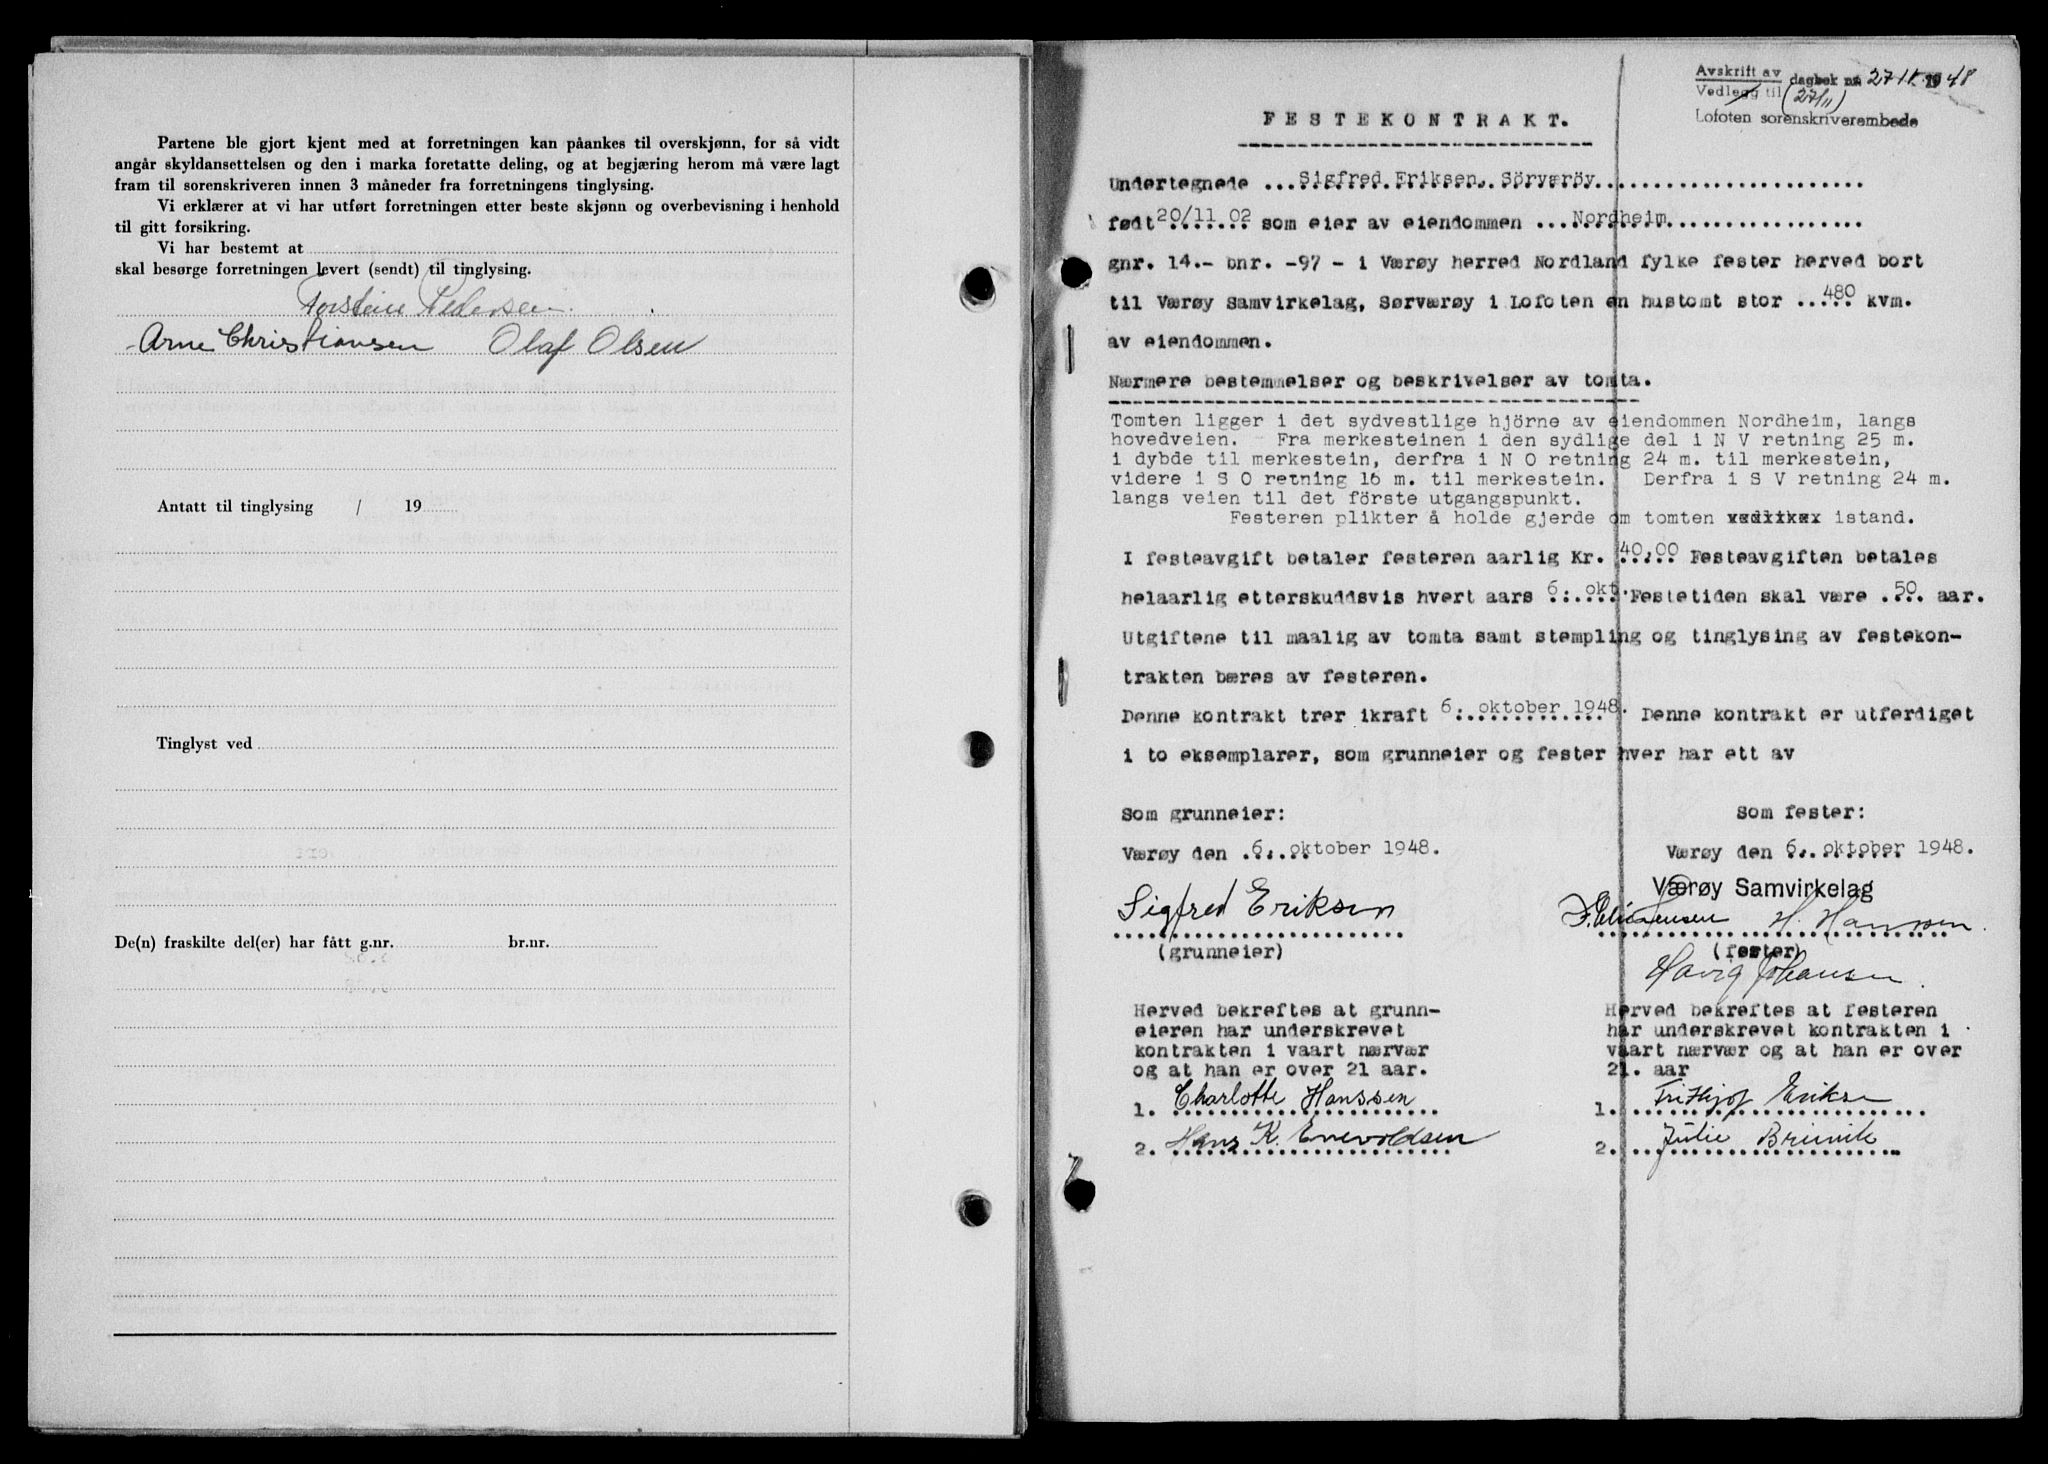 Partene ble gjort kjent med at forretningen kan påankes til overskjønn, for så vidt
angår skyldansettelsen og den i marka foretatte deling, og at begjæring herom må være lagt
fram til sorenskriveren innen 3 måneder fra forretningens tinglysing.
Vi erklærer at vi har utført forretningen etter beste skjønn og overbevisning i henhold
til gitt forsikring.
Vi har bestemt at
skal besørge forretningen levert (sendt) til tinglysing.
Torstein Pedersen.
Arne Christiansen Olaf Olsen
Antatt til tinglysing / 19
Tinglyst ved
De(n) fraskilte del(er) har fått g.nr. br.nr.
Avskrift av
Vedlegg til dagbok nr. 2711 1948
(27/11)
Lofoten sorenskriverembede
FESTEKONTRAKT.
Undertegnede ...Sigfred Eriksen, Sörværöy
født 20/11.02 som eier av eiendommen ...Nordheim
gnr. 14.- bnr. -97 - i Værøy herred Nordland fylke fester herved bort
til Værøy Samvirkelag, Sørværøy i Lofoten en hustomt stor ..480 kvm.
av eiendommen.
Nærmere bestemmelser og beskrivelser av tomta.
Tomten ligger i det sydvestlige hjörne av eiendommen Nordheim, langs
hovedveien. - Fra merkesteinen i den sydlige del i N V retning 25 m.
i dybde til merkestein, derfra i N O retning 24 m. til merkestein,
videre i S O retning 16 m. til merkestein. Derfra i S V retning 24 m.
langs veien til det förste utgangspunkt.
Festeren plikter å holde gjerde om tomten vedlikex istand.
I festeavgift betaler festeren aarlig Kr. 40.00 Festeavgiften betales
helaarlig etterskuddsvis hvert aars 6. okt. Festetiden skal være .50. aar.
Utgiftene til maalig av tomta samt stempling og tinglysing av festekon-
trakten bæres av festeren.
Denne kontrakt trer ikraft 6. oktober 1948. Denne kontrakt er utferdiget
i to eksemplarer, som grunneier og fester hver har ett av
Som grunneier:
Værøy den .6. oktober 1948.
Sigfred Eriksen
(grunneier)
Herved bekreftes at grunn-
eieren har underskrevet
kontrakten i vaart nærvær
og at han er over 21 aar.
1. Charlotte Hanssen
2. Hans K. Enevoldsen
Som fester:
Værøy den 6. oktober 1948.
Værøy Samvirkelag
H. Hanssen
(fester)
Havig Johansen
Herved bekreftes at festeren
har underskrevet kontrakten i
vaart nærvær og at han er over
21. aar
1. Frithjof Eriksen
2. Julie Breivik